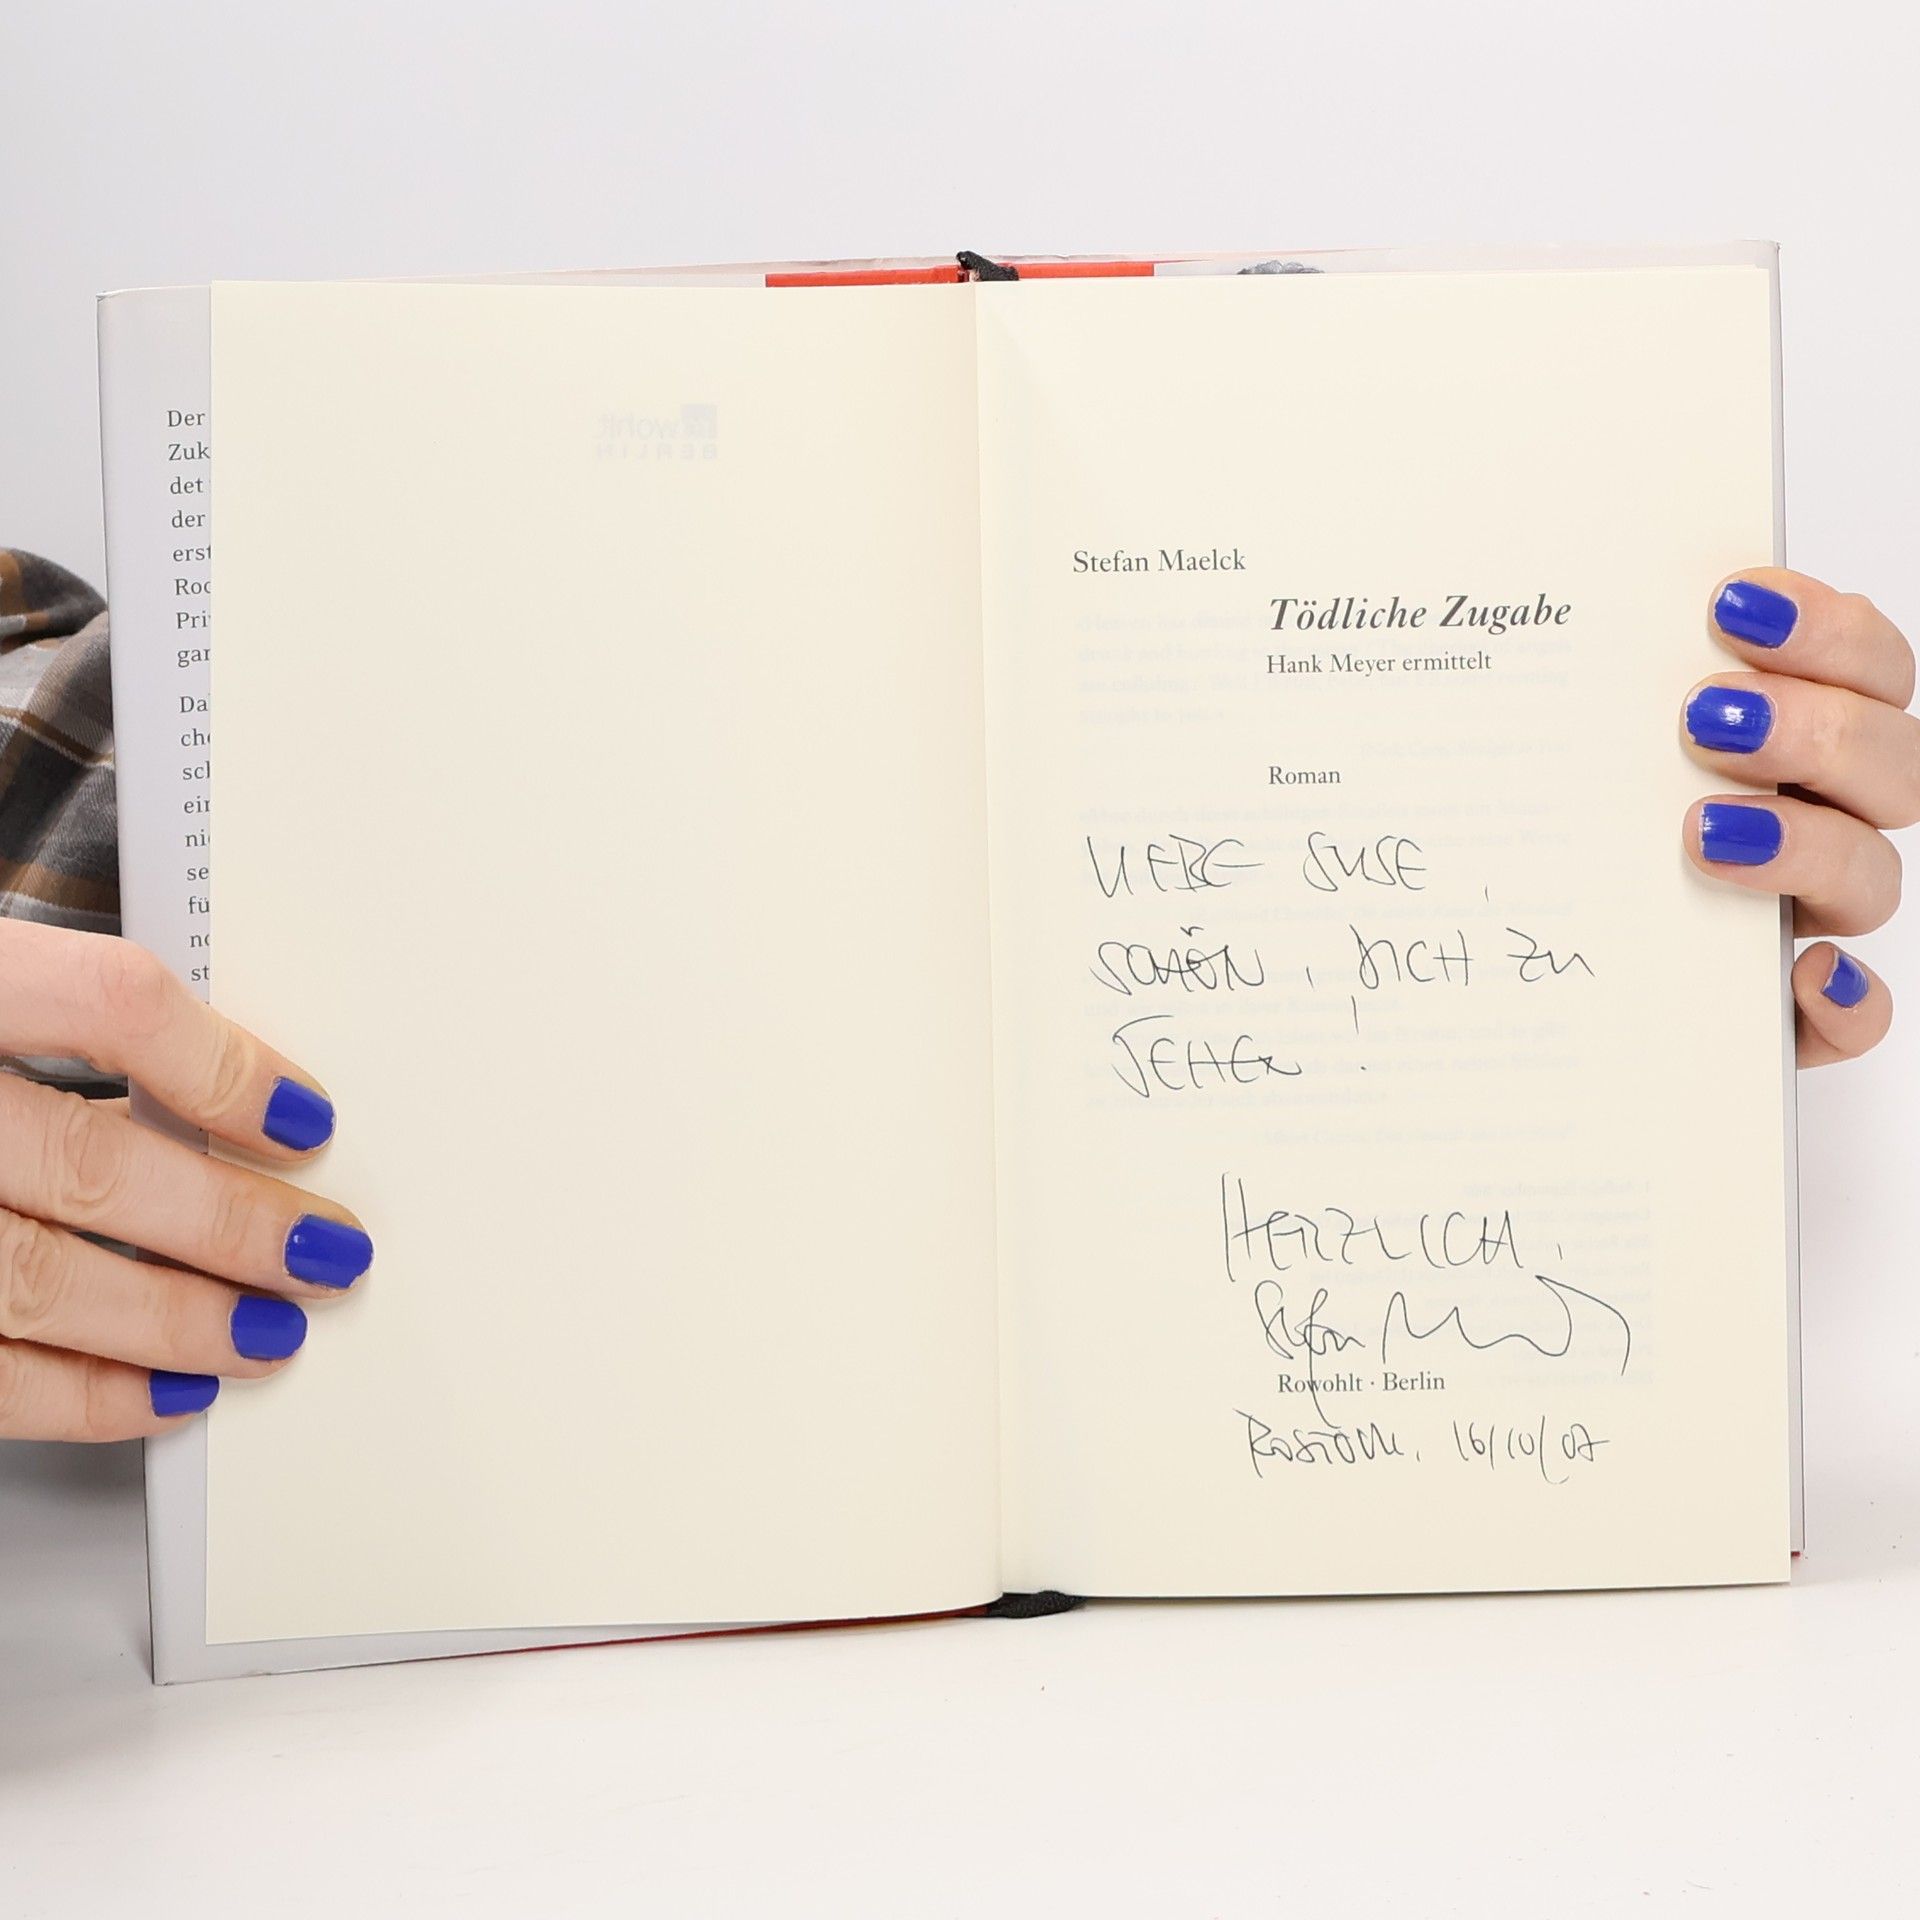 Der
Zuk
det
der
erst
Roc
Pri
gar
Da
che
scl
ein
nic
se
fü
no
st
rowohlt
BERLIN
Stefan Maelck
Tödliche Zugabe
Hank Meyer ermittelt
Roman
LIEBE SUSE,
SCHÖN, DICH ZU
SEHEN!
HERZLICH,
Stefan Maelck
Rowohlt · Berlin
ROSTOCK, 16/10/07